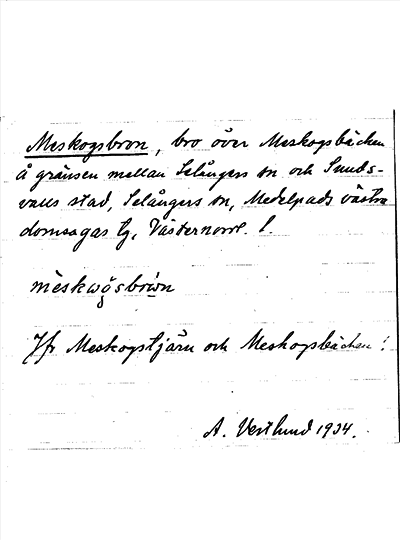 Meskogsbron, bro över Meskogsbäcken
å gränsen mellan Selångers sn och Sunds-
valls stad, Selångers sn, Medelpads västra
domsagas tg, Västernorrl. l.
mèskwǫgsbrẁn
Jfr Meskogstjärn och Meskogsbäcken!
A. Vestlund 1934.